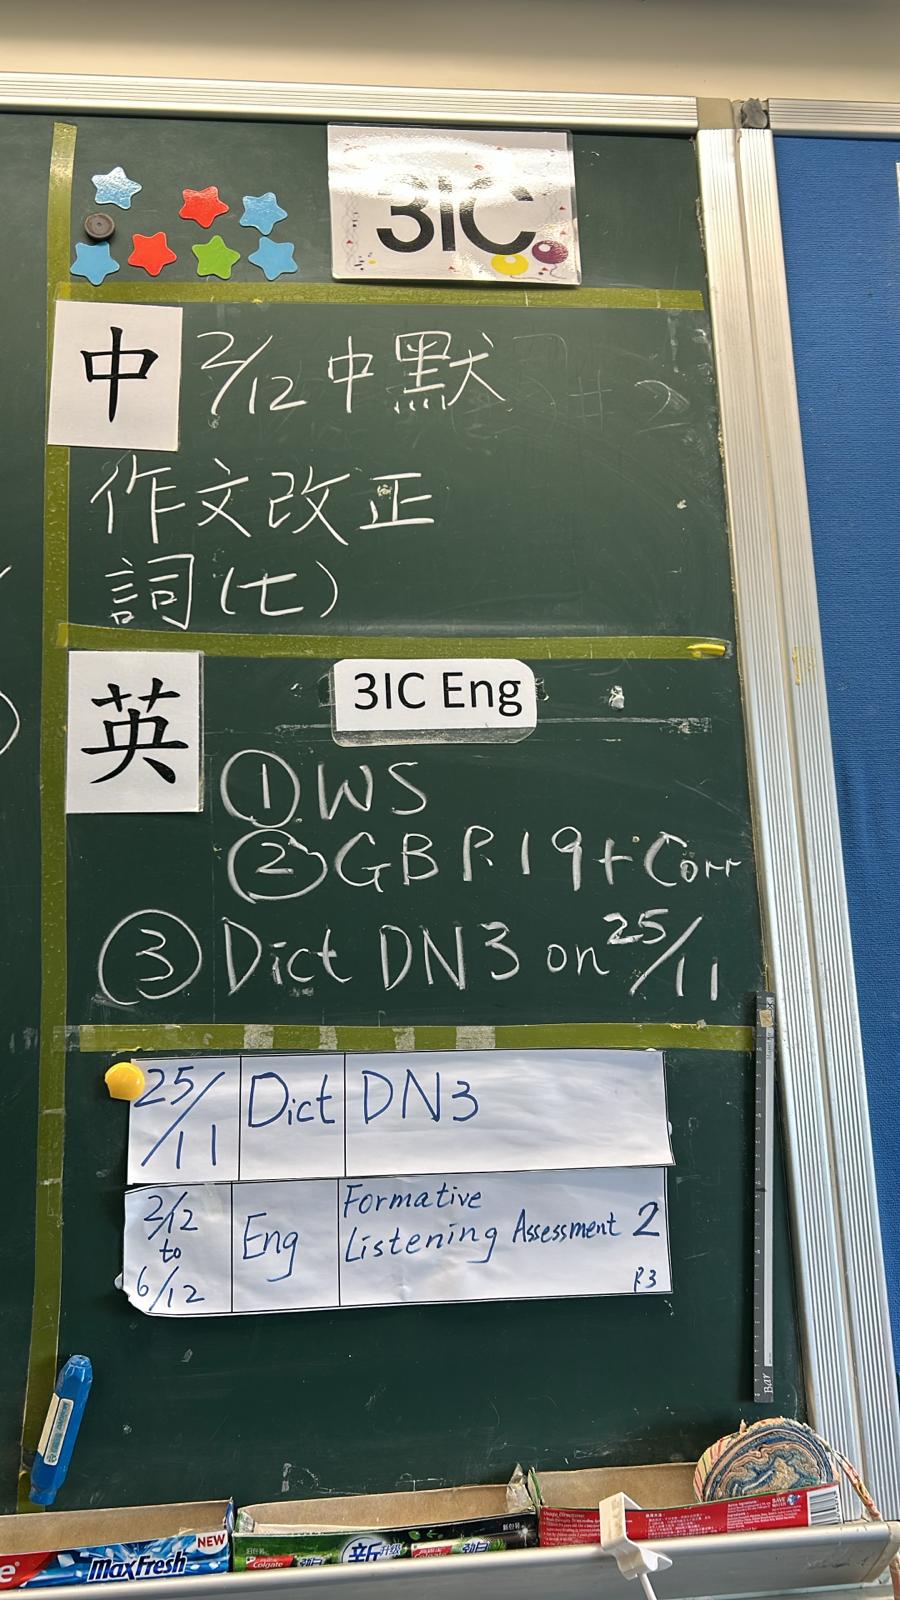 3IC
中 2/12 中默
作文改正
詞(七)
英
3IC Eng
① WS
② GB P.19 + Corr
③ Dict DN3 on 25/11
25/11 Dict DN3
2/12 to 6/12 Eng Formative Listening Assessment 2 P.3
Bar
NEW
MaxFresh
旧包装
新升级
新包装
Colgate
劲白
SAVE WATER